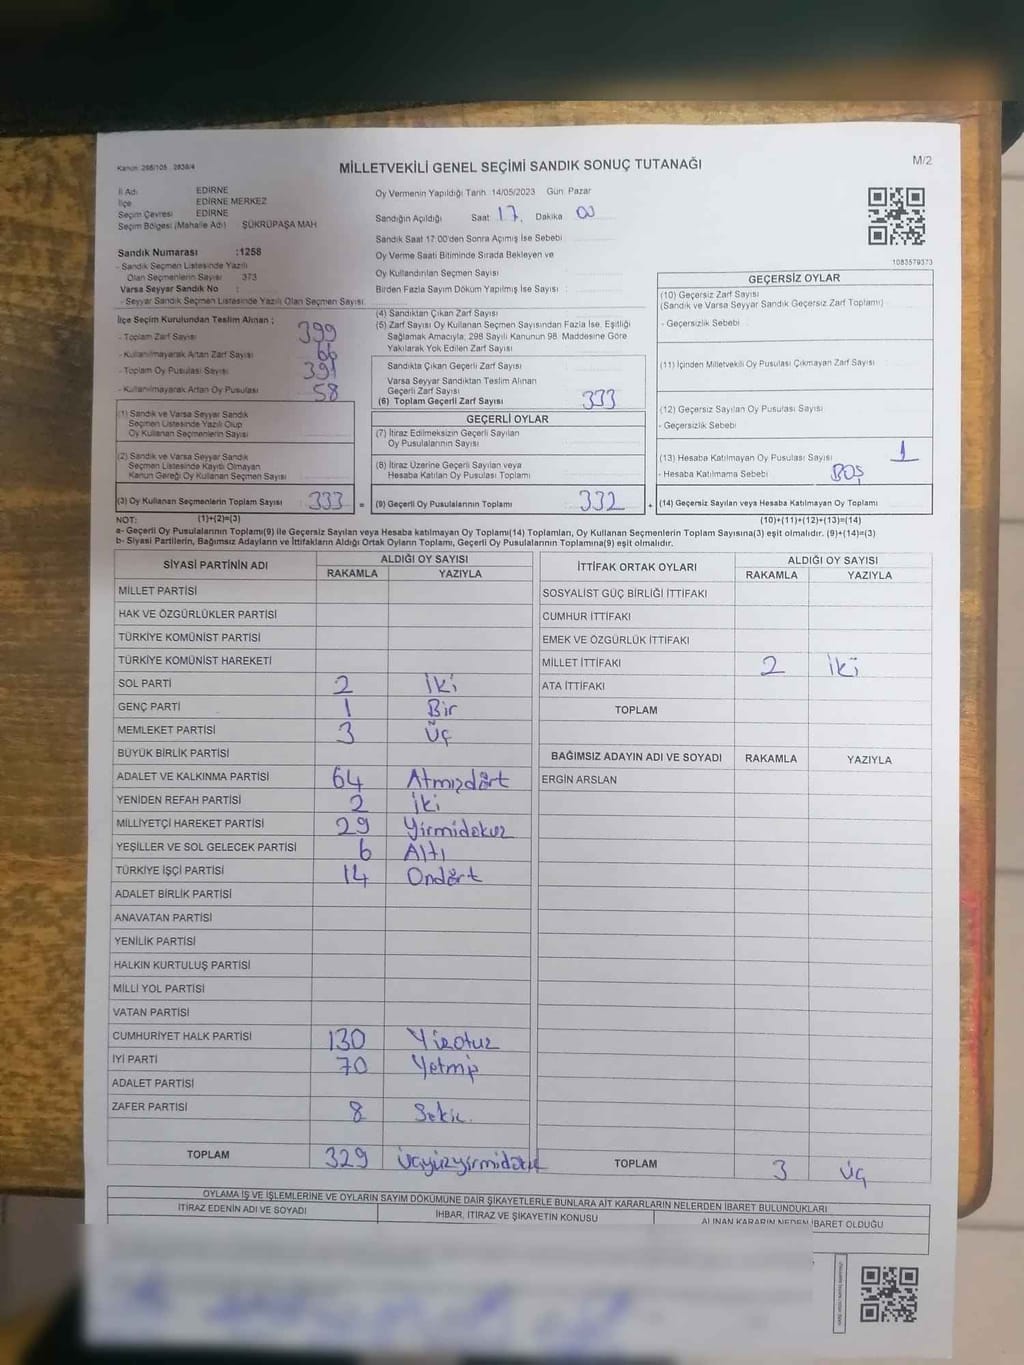 Kanun: 298/105 2839/4
MİLLETVEKİLİ GENEL SEÇİMİ SANDIK SONUÇ TUTANAĞI
M/2
İl Adı EDİRNE
İlçe EDİRNE MERKEZ
Seçim Çevresi EDİRNE
Seçim Bölgesi (Mahalle Adı) ŞÜKRÜPAŞA MAH
Oy Vermenin Yapıldığı Tarih 14/05/2023 Gün Pazar
Sandığın Açıldığı Saat 17. Dakika 00
Sandık Saat 17:00'den Sonra Açımış İse Sebebi
Oy Verme Saati Bitiminde Sırada Bekleyen ve
Oy Kullandırılan Seçmen Sayısı
Birden Fazla Sayım Döküm Yapılmış İse Sayısı :
1083579373
Sandık Numarası :1258
- Sandık Seçmen Listesinde Yazılı
Olan Seçmenlerin Sayısı 373
Varsa Seyyar Sandık No :
- Seyyar Sandık Seçmen Listesinde Yazılı Olan Seçmen Sayısı
İlçe Seçim Kurulundan Teslim Alınan ;
- Toplam Zarf Sayısı 399
- Kullanılmayarak Artan Zarf Sayısı 66
- Toplam Oy Pusulası Sayısı 391
- Kullanılmayarak Artan Oy Pusulası 58
(1) Sandık ve Varsa Seyyar Sandık
Seçmen Listesinde Yazılı Olup
Oy Kullanan Seçmenlerin Sayısı
(2) Sandık ve Varsa Seyyar Sandık
Seçmen Listesinde Kayıtlı Olmayan
Kanun Gereği Oy Kullanan Seçmen Sayısı
(3) Oy Kullanan Seçmenlerin Toplam Sayısı 333 =
(4) Sandıktan Çıkan Zarf Sayısı
(5) Zarf Sayısı Oy Kullanan Seçmen Sayısından Fazla İse, Eşitliği
Sağlamak Amacıyla, 298 Sayılı Kanunun 98. Maddesine Göre
Yakılarak Yok Edilen Zarf Sayısı
Sandıkta Çıkan Geçerli Zarf Sayısı
Varsa Seyyar Sandıktan Teslim Alınan
Geçerli Zarf Sayısı
(6) Toplam Geçerli Zarf Sayısı 333
GEÇERLİ OYLAR
(7) İtiraz Edilmeksizin Geçerli Sayılan
Oy Pusulalarının Sayısı
(8) İtiraz Üzerine Geçerli Sayılan veya
Hesaba Katılan Oy Pusulası Toplamı
(9) Geçerli Oy Pusulalarının Toplamı 332 +
GEÇERSİZ OYLAR
(10) Geçersiz Zarf Sayısı
(Sandık ve Varsa Seyyar Sandık Geçersiz Zarf Toplamı)
- Geçersizlik Sebebi
(11) İçinden Milletvekili Oy Pusulası Çıkmayan Zarf Sayısı
(12) Geçersiz Sayılan Oy Pusulası Sayısı
- Geçersizlik Sebebi
(13) Hesaba Katılmayan Oy Pusulası Sayısı 1
- Hesaba Katılmama Sebebi BOŞ
(14) Geçersiz Sayılan veya Hesaba Katılmayan Oy Toplamı
NOT: (1)+(2)=(3) (10)+(11)+(12)+(13)=(14)
a- Geçerli Oy Pusulalarının Toplamı(9) ile Geçersiz Sayılan veya Hesaba katılmayan Oy Toplamı(14) Toplamları, Oy Kullanan Seçmenlerin Toplam Sayısına(3) eşit olmalıdır. (9)+(14)=(3)
b- Siyasi Partilerin, Bağımsız Adayların ve İttifakların Aldığı Ortak Oyların Toplamı, Geçerli Oy Pusulalarının Toplamına(9) eşit olmalıdır.
SİYASİ PARTİNİN ADI ALDIĞI OY SAYISI
RAKAMLA YAZIYLA
MİLLET PARTİSİ
HAK VE ÖZGÜRLÜKLER PARTİSİ
TÜRKİYE KOMÜNİST PARTİSİ
TÜRKİYE KOMÜNİST HAREKETİ
SOL PARTİ 2 İki
GENÇ PARTİ 1 Bir
MEMLEKET PARTİSİ 3 Üç
BÜYÜK BİRLİK PARTİSİ
ADALET VE KALKINMA PARTİSİ 64 Atmışdört
YENİDEN REFAH PARTİSİ 2 İki
MİLLİYETÇİ HAREKET PARTİSİ 29 Yirmidokuz
YEŞİLLER VE SOL GELECEK PARTİSİ 6 Altı
TÜRKİYE İŞÇİ PARTİSİ 14 Ondört
ADALET BİRLİK PARTİSİ
ANAVATAN PARTİSİ
YENİLİK PARTİSİ
HALKIN KURTULUŞ PARTİSİ
MİLLİ YOL PARTİSİ
VATAN PARTİSİ
CUMHURİYET HALK PARTİSİ 130 Yüzotuz
İYİ PARTİ 70 Yetmiş
ADALET PARTİSİ
ZAFER PARTİSİ 8 Sekiz.
TOPLAM 329 Üçyüzyirmidokuz
İTTİFAK ORTAK OYLARI ALDIĞI OY SAYISI
RAKAMLA YAZIYLA
SOSYALİST GÜÇ BİRLİĞİ İTTİFAKI
CUMHUR İTTİFAKI
EMEK VE ÖZGÜRLÜK İTTİFAKI
MİLLET İTTİFAKI 2 İki
ATA İTTİFAKI
TOPLAM
BAĞIMSIZ ADAYIN ADI VE SOYADI RAKAMLA YAZIYLA
ERGİN ARSLAN
TOPLAM 3 Üç
OYLAMA İŞ VE İŞLEMLERİNE VE OYLARIN SAYIM DÖKÜMÜNE DAİR ŞİKAYETLERLE BUNLARA AİT KARARLARIN NELERDEN İBARET BULUNDUKLARI
İTİRAZ EDENİN ADI VE SOYADI İHBAR, İTİRAZ VE ŞİKAYETİN KONUSU ALINAN KARARIN NEDEN İBARET OLDUĞU